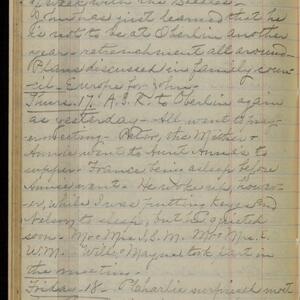 week with the
John has just learned that he
is not to be at Oberlin another
year - retrenchment all around -
Plans discussed in family coun-
cil - Europe for John.
Thurs. 17. A.S.R. to Oberlin again
as yesterday - All went to
meeting - the Mother &
Annie went to Aunt Anna's to
supper - Francis being asleep before
went. He woke up, howev-
er, while I was putting Keyes and
Nelson to sleep, but quieted
soon. Mr & Mrs. I. S. M. Mr & Mrs.
W. M. Will, took part in
the meeting.
Friday - 18 - Charlie surprised most